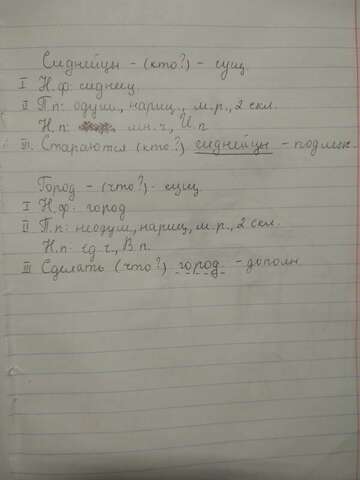 Сиднейцы - (кто?) - сущ.
I Н.ф: сиднеец
II П.п: одуш., нариц., м.р., 2 скл.
Н.п: мн.ч, И.п.
III. Стараются (кто?) сиднейцы - подлеж.
Город - (что?) - сущ.
I Н.ф: город
II П.п: неодуш., нариц, м.р., 2 скл.
Н.п: ед.ч., В.п.
III Сделать (что?) город - дополн.